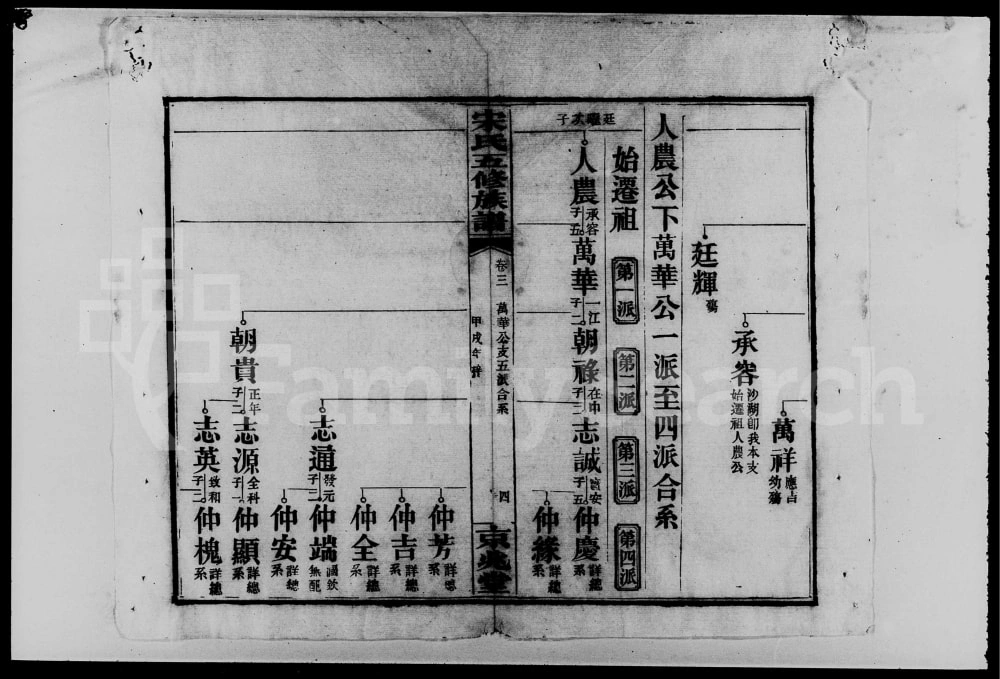 廷輝 殤
承容 沙湖卽我本支
始遷祖人農公
萬祥 應占
幼殤
人農公下萬華公一派至四派合系
始遷祖
第一派
第二派
第三派
第四派
廷次子
人農 承容
子五
萬華 一江
子二
朝祿 在中
子二
志誠 安
子五
仲慶 詳總
系
仲緣 詳總
系
宋氏五修族譜
卷三
萬華公支五派合系
四
甲戌年
京兆堂
仲芳 詳總
系
仲吉 詳總
系
仲全 詳總
系
志通 發元
子二
仲端
無配
仲安 詳總
系
朝貴 正年
子二
志源 全科
子一
仲顯 詳總
系
志英 致和
子二
仲槐 詳總
系
FamilySearch